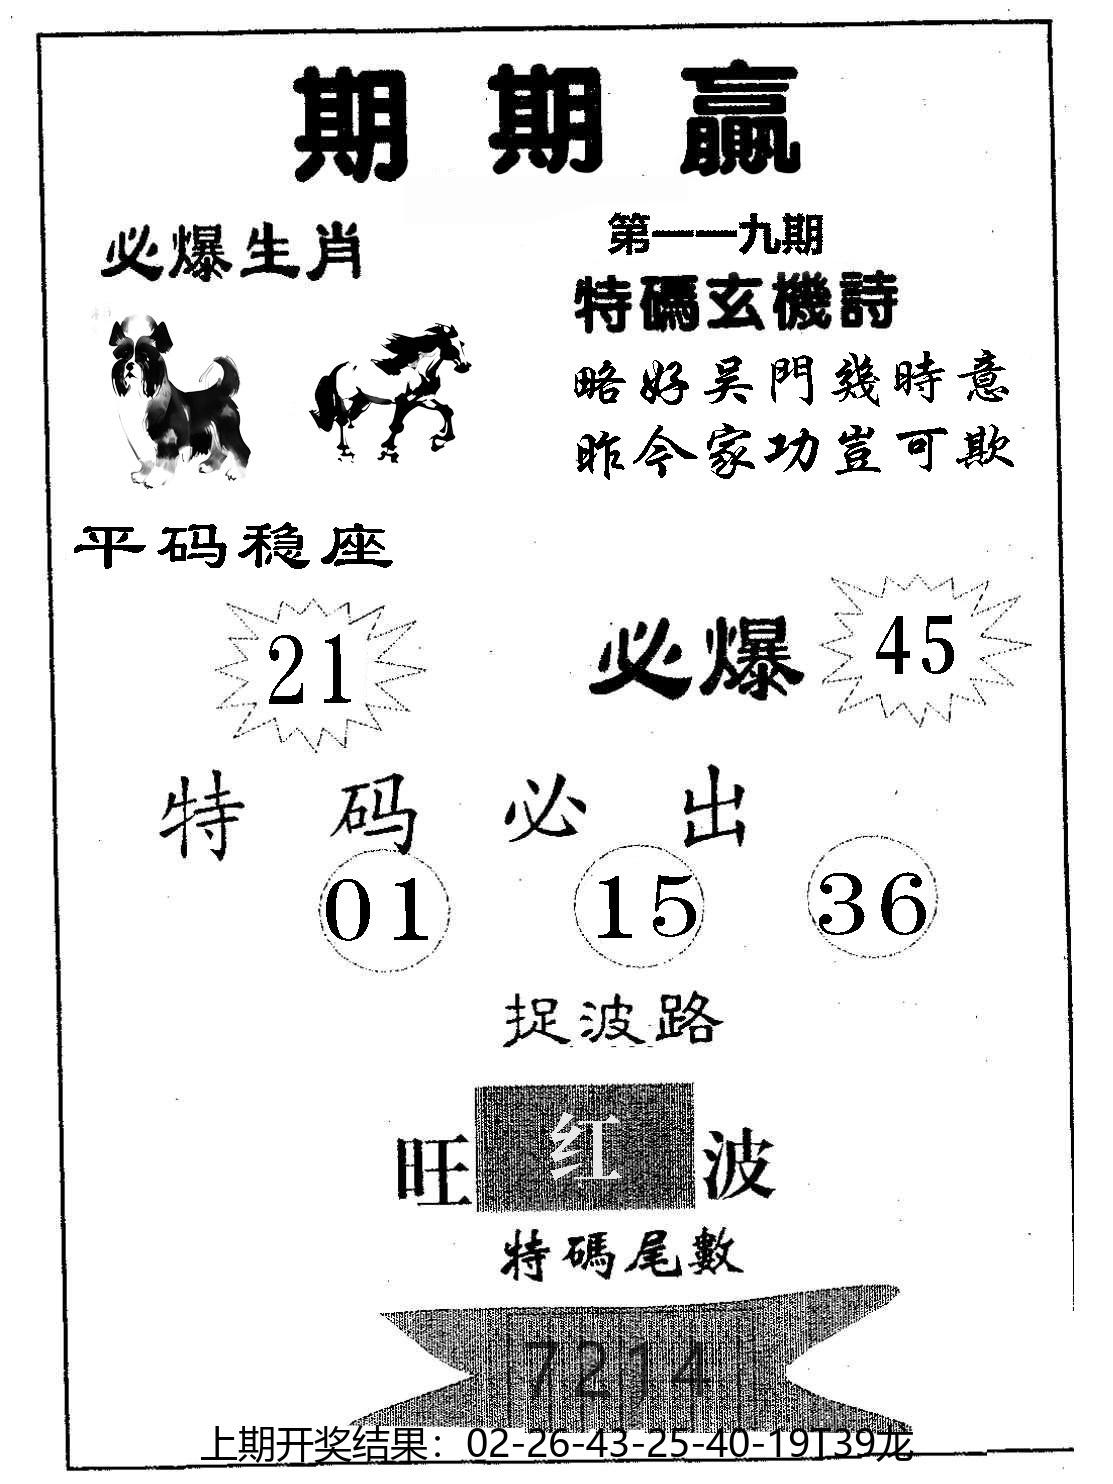 期期贏
必爆生肖
第一一九期
特碼玄機詩
略好吴門幾時意
昨今家功豈可欺
平码稳座
21
必爆
45
特码必出
01 15 36
捉波路
旺红波
特碼尾數
7214
上期开奖结果：02-26-43-25-40-19T39龙